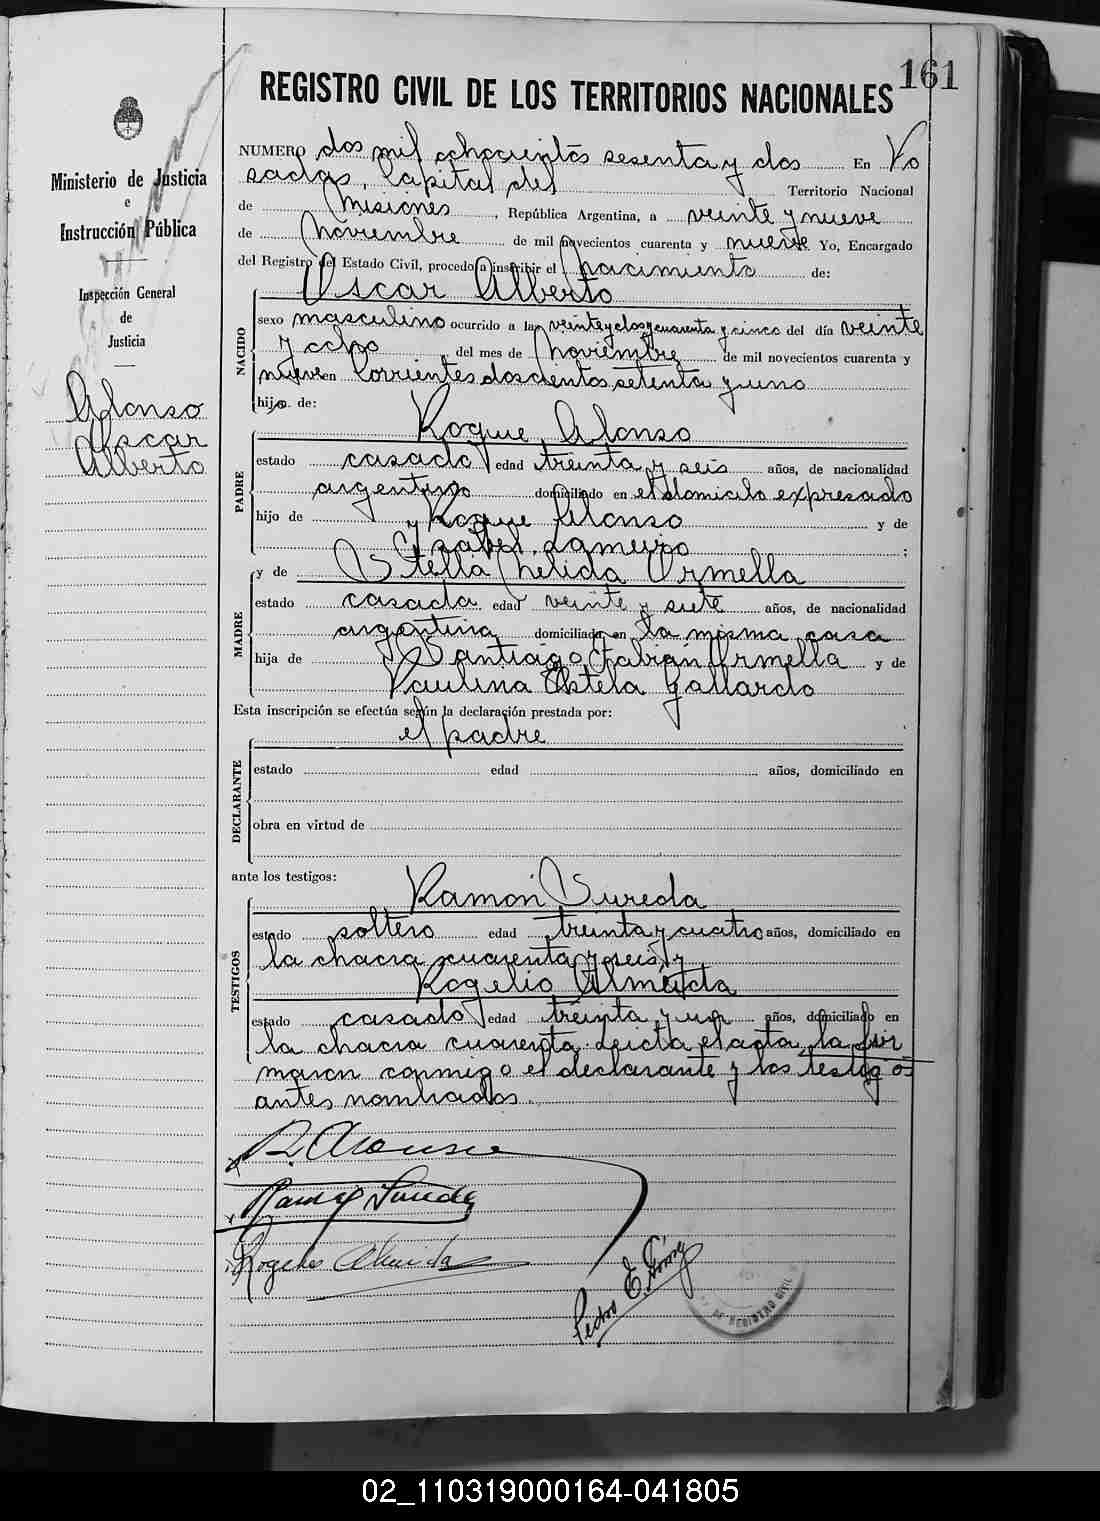 161
REGISTRO CIVIL DE LOS TERRITORIOS NACIONALES
Ministerio de Justicia
e
Instrucción Pública
Inspección General
de
Justicia
Alonso
Oscar
Alberto
NUMERO dos mil ochocientos sesenta y dos En Po
sadas, Capital del Territorio Nacional
de Misiones, República Argentina, a veinte y nueve
de Noviembre de mil novecientos cuarenta y nueve Yo, Encargado
del Registro del Estado Civil, procedo a inscribir el nacimiento de:
Oscar Alberto
NACIDO
sexo masculino ocurrido a las veinte y dos y cuarenta y cinco del día veinte
y ocho del mes de Noviembre de mil novecientos cuarenta y
nueve en Corrientes doscientos setenta y uno
hijo de:
Roque Alonso
PADRE
estado casado edad treinta y seis años, de nacionalidad
argentino domiciliado en el domicilo expresado
hijo de Roque Alonso y de
Ysabel Lameiro;
y de Stella Nelida Ormella
MADRE
estado casada edad veinte y siete años, de nacionalidad
argentina domiciliada en la misma casa
hija de Santiago Fabian Ormella y de
Paulina Estela Gallardo
Esta inscripción se efectúa según la declaración prestada por:
el padre
DECLARANTE
estado edad años, domiciliado en
obra en virtud de
ante los testigos:
Ramón Sureda
TESTIGOS
estado soltero edad treinta y cuatro años, domiciliado en
la chacra cuarenta y seis y
Rogelio Almeida
estado casado edad treinta y un años, domiciliado en
la chacra cuarenta. Leida el acta la fir
maron conmigo el declarante y los testigos
antes nombrados.
R. Alonso
Ramón Sureda
Rogelio Almeida
Pedro E.
DE REGISTRO CIVIL
02_110319000164-041805